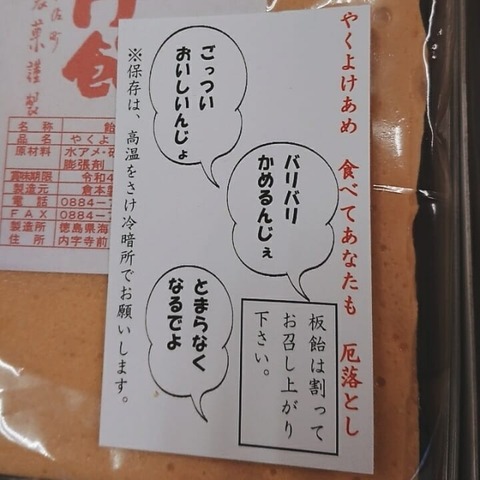 やくよけあめ 食べてあなたも 厄落とし
ごっつい
おいしいんじょ
バリバリ
かめるんじぇ
とまらなく
なるでよ
板飴は割って
お召し上がり
下さい。
※保存は、高温をさけ冷暗所でお願いします。
名称 飴
品名 やくよ
原材料 水アメ・砂
膨張剤
賞味期限 令和4
製造元 倉本製
電話 0884-7
FAX 0884-7
製造所 徳島県海
住所 内字寺前